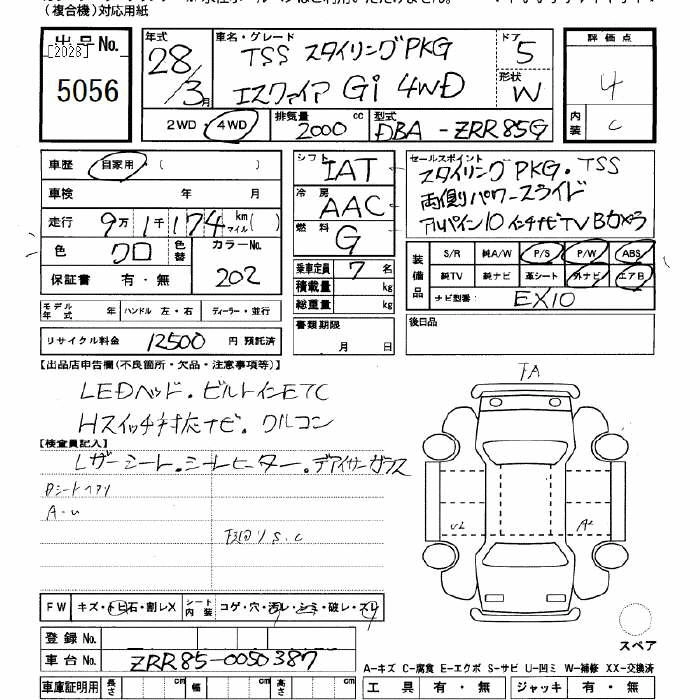 (複合機)対応用紙
出品No.
[2028]
5056
年式 28/3月
車名・グレード TSS スタイリングPKG
エスクァイア Gi 4WD
ドア 5
形状 W
評価点 4
内装 C
2WD・4WD 排気量 2000 cc 型式 DBA-ZRR85G
車歴 自家用・( )
車検 年 月
走行 9万1千174km マイル( )
色 クロ 色替 カラーNo. 202
保証書 有・無
シフト IAT
冷房 AAC
燃料 G
乗車定員 7 名
積載量 kg
総重量 kg
書類期限
月 日
セールスポイント
スタイリングPKG・TSS
両側パワースライド
アルパイン10インチナビTVBカメラ
装備品 S/R 純A/W P/S P/W ABS
純TV 純ナビ 革シート 外ナビ エアB
ナビ型番: EX10
後日品
モデル年式 年 ハンドル 左・右 ディーラー・並行
リサイクル料金 12500円 預託済
【出品店申告欄(不良箇所・欠品・注意事項等)】
LEDヘッド・ビルトインETC
Hスイッチ対応ナビ・クルコン
【検査員記入】
Lザーシート・シートヒーター・デアイサーガラス
Dシートヘタリ
A・U
下回りS.C
TA
U2
A2
FW キズ・トビ石・割レX シート内装 コゲ・穴・汚レ・シミ・破レ・スレ
スペア
登録No.
車台No. ZRR85-0050387
A-キズ C-腐食 E-エクボ S-サビ U-凹ミ W-補修 XX-交換済
車庫証明用 長さ cm 幅 cm 高さ cm
工具 有・無 ジャッキ 有・無